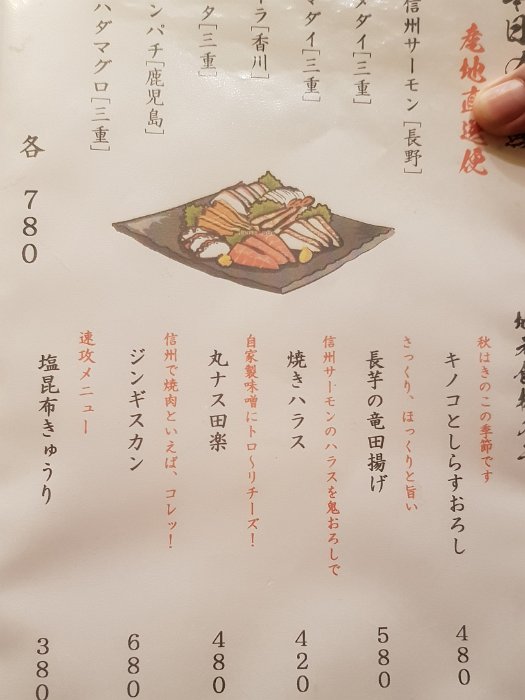 産地直送便
信州サーモン[長野]
ダイ[三重]
マダイ[三重]
ラ[香川]
タ[三重]
ンパチ[鹿児島]
ハダマグロ[三重]
各 780
秋はきのこの季節です
キノコとしらすおろし 480
さっくり、ほっくりと旨い
長芋の竜田揚げ 580
信州サーモンのハラスを鬼おろしで
焼きハラス 420
自家製味噌にトロ~リチーズ!
丸ナス田楽 480
信州で焼肉といえば、コレッ!
ジンギスカン 680
速攻メニュー
塩昆布きゅうり 380